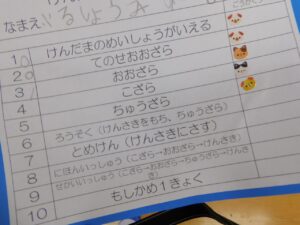 なまえ
1 けんだまのめいしょうがいえる
2 てのせおおざら
3 おおざら
4 こざら
5 ちゅうざら
6 ろうそく(けんさきをもち、ちゅうざら)
7 とめけん(けんさきにさす)
8 にほんいっしゅう(こざら→おおざら→けんさき)
9 せかいいっしゅう(こざら→おおざら→ちゅうざら→けんさき)
10 もしかめ1きょく